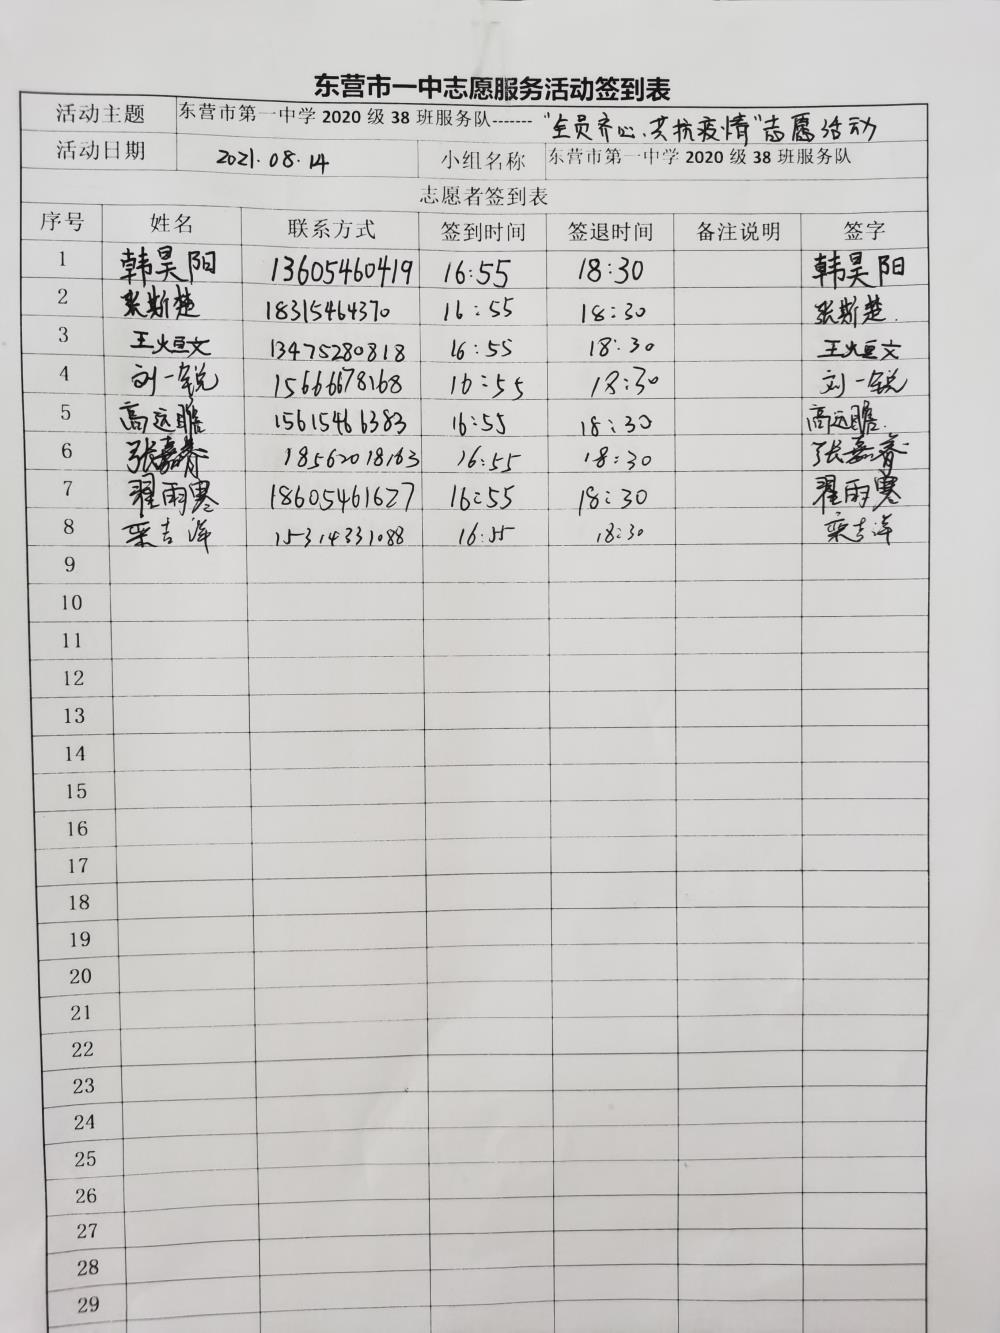 东营市一中志愿服务活动签到表
活动主题 东营市第一中学 2020 级 38 班服务队------- "全员齐心、共抗疫情"志愿活动
活动日期 2021.08.14 小组名称 东营市第一中学 2020 级 38 班服务队
志愿者签到表
序号 姓名 联系方式 签到时间 签退时间 备注说明 签字
1 韩昊阳 13605460419 16:55 18:30 韩昊阳
2 张斯楚 18315464370 16:55 18:30 张斯楚
3 王烜文 13475280818 16:55 18:30 王烜文
4 刘一锐 15666678168 16:55 18:30 刘一锐
5 高远瞻 15615466383 16:55 18:30 高远瞻
6 张嘉睿 18562018163 16:55 18:30 张嘉睿
7 翟雨寒 18605461627 16:55 18:30 翟雨寒
8 栾吉洋 15314331088 16:55 18:30 栾吉洋
9
10
11
12
13
14
15
16
17
18
19
20
21
22
23
24
25
26
27
28
29